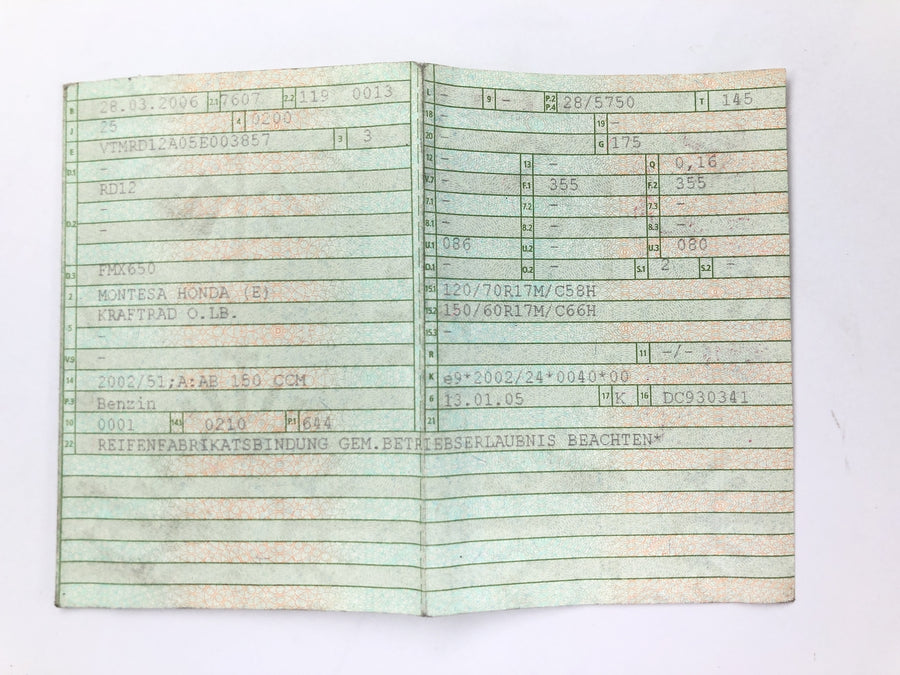 B 28.03.2006 2.1 7607 2.2 119 0013
J 25 4 0200
E VTMRD12A05E003857 3 3
D.1 -
RD12
-
D.2 -
D.3 FMX650
2 MONTESA HONDA (E)
KRAFTRAD O.LB.
5 -
V.9 -
14 2002/51;A:AB 150 CCM
P.3 Benzin
10 0001 14.1 0210 P.1 644
22 REIFENFABRIKATSBINDUNG GEM.BETRIEBSERLAUBNIS BEACHTEN*
L - 9 - P.2 P.4 28/5750 T 145
18 - 19 -
20 - G 175
12 - 13 - Q 0,16
V.7 - F.1 355 F.2 355
7.1 - 7.2 - 7.3 -
8.1 - 8.2 - 8.3 -
U.1 086 U.2 - U.3 080
O.1 - O.2 - S.1 2 S.2 -
15.1 120/70R17M/C58H
15.2 150/60R17M/C66H
15.3 -
R 11 -/-
K e9*2002/24*0040*00
6 13.01.05 17 K 16 DC930341
21